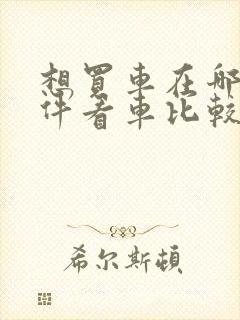 想買車在哪
件看車比較
希尔斯顿